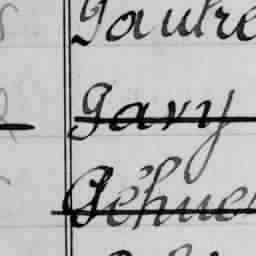 Gautre
Gavy
Géhue